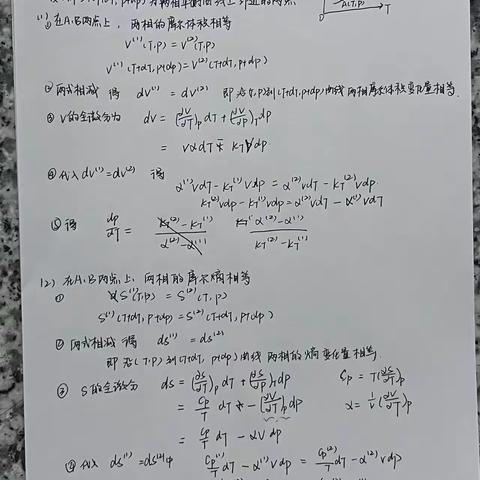 A(T,P)
T
(1) 在A、B两点上，两相的摩尔体积相等
V⁽¹⁾(T,P) = V⁽²⁾(T,P)
V⁽¹⁾(T+dT, P+dP) = V⁽²⁾(T+dT, P+dP)
② 两式相减 得 dV⁽¹⁾ = dV⁽²⁾ 即沿(T,P)到(T+dT,P+dP)曲线两相摩尔体积变化量相等.
③ V的全微分为 dV = (∂V/∂T)_P dT + (∂V/∂P)_T dP
= VαdT - K_T V dP
④ 代入 dV⁽¹⁾=dV⁽²⁾ 得 α⁽¹⁾VdT - K_T⁽¹⁾VdP = α⁽²⁾VdT - K_T⁽²⁾VdP
K_T⁽²⁾VdP - K_T⁽¹⁾VdP = α⁽²⁾VdT - α⁽¹⁾VdT
⑤ 得 dP/dT = (α⁽²⁾-α⁽¹⁾)/(K_T⁽²⁾-K_T⁽¹⁾)
(2) 在A、B两点上，两相的摩尔熵相等
① S⁽¹⁾(T,P) = S⁽²⁾(T,P)
S⁽¹⁾(T+dT, P+dP) = S⁽²⁾(T+dT, P+dP)
② 两式相减 得 dS⁽¹⁾ = dS⁽²⁾
即沿(T,P)到(T+dT, P+dP)曲线 两相的熵变化量相等.
③ S的全微分 dS = (∂S/∂T)_P dT + (∂S/∂P)_T dP C_P = T(∂S/∂T)_P
= C_P/T dT - (∂V/∂T)_P dP α = 1/V (∂V/∂T)_P
= C_P/T dT - αV dP
④ 代入 dS⁽¹⁾=dS⁽²⁾中 C_P⁽¹⁾/T dT - α⁽¹⁾VdP = C_P⁽²⁾/T dT - α⁽²⁾VdP